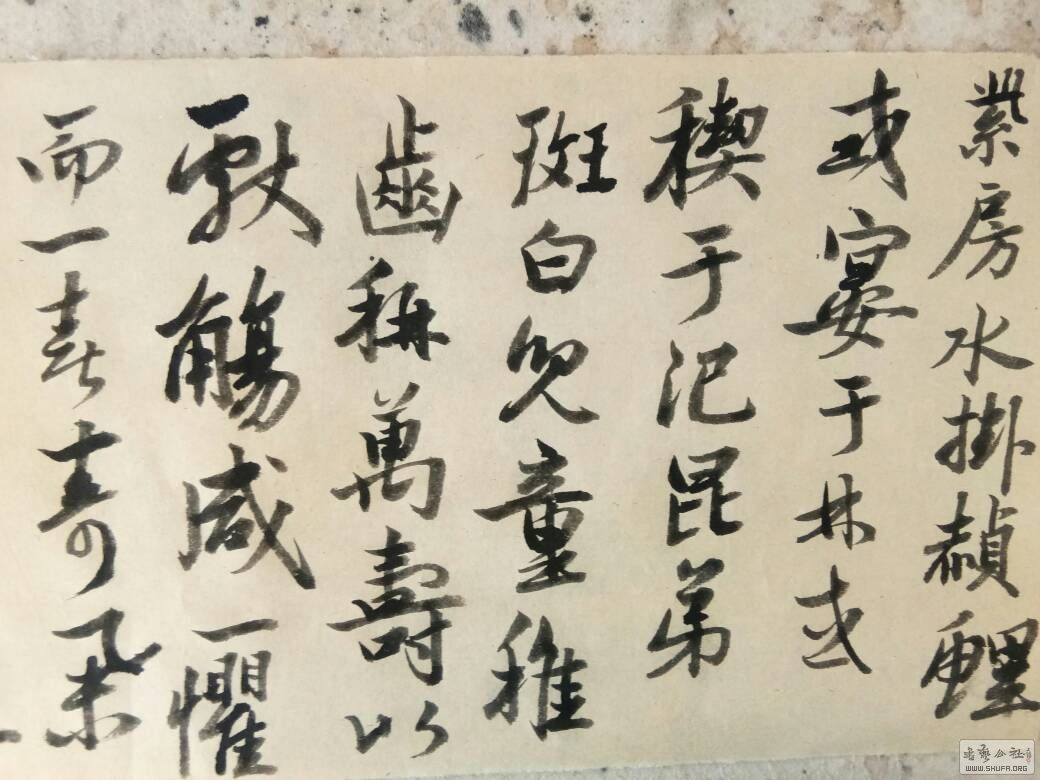 紫房水掛赬鯉
或宴于林或
禊于汜昆弟
斑白兒童稚
齒稱萬壽以
獻觴咸一懼
而一喜壽
书艺公社
WWW.SHUFA.ORG